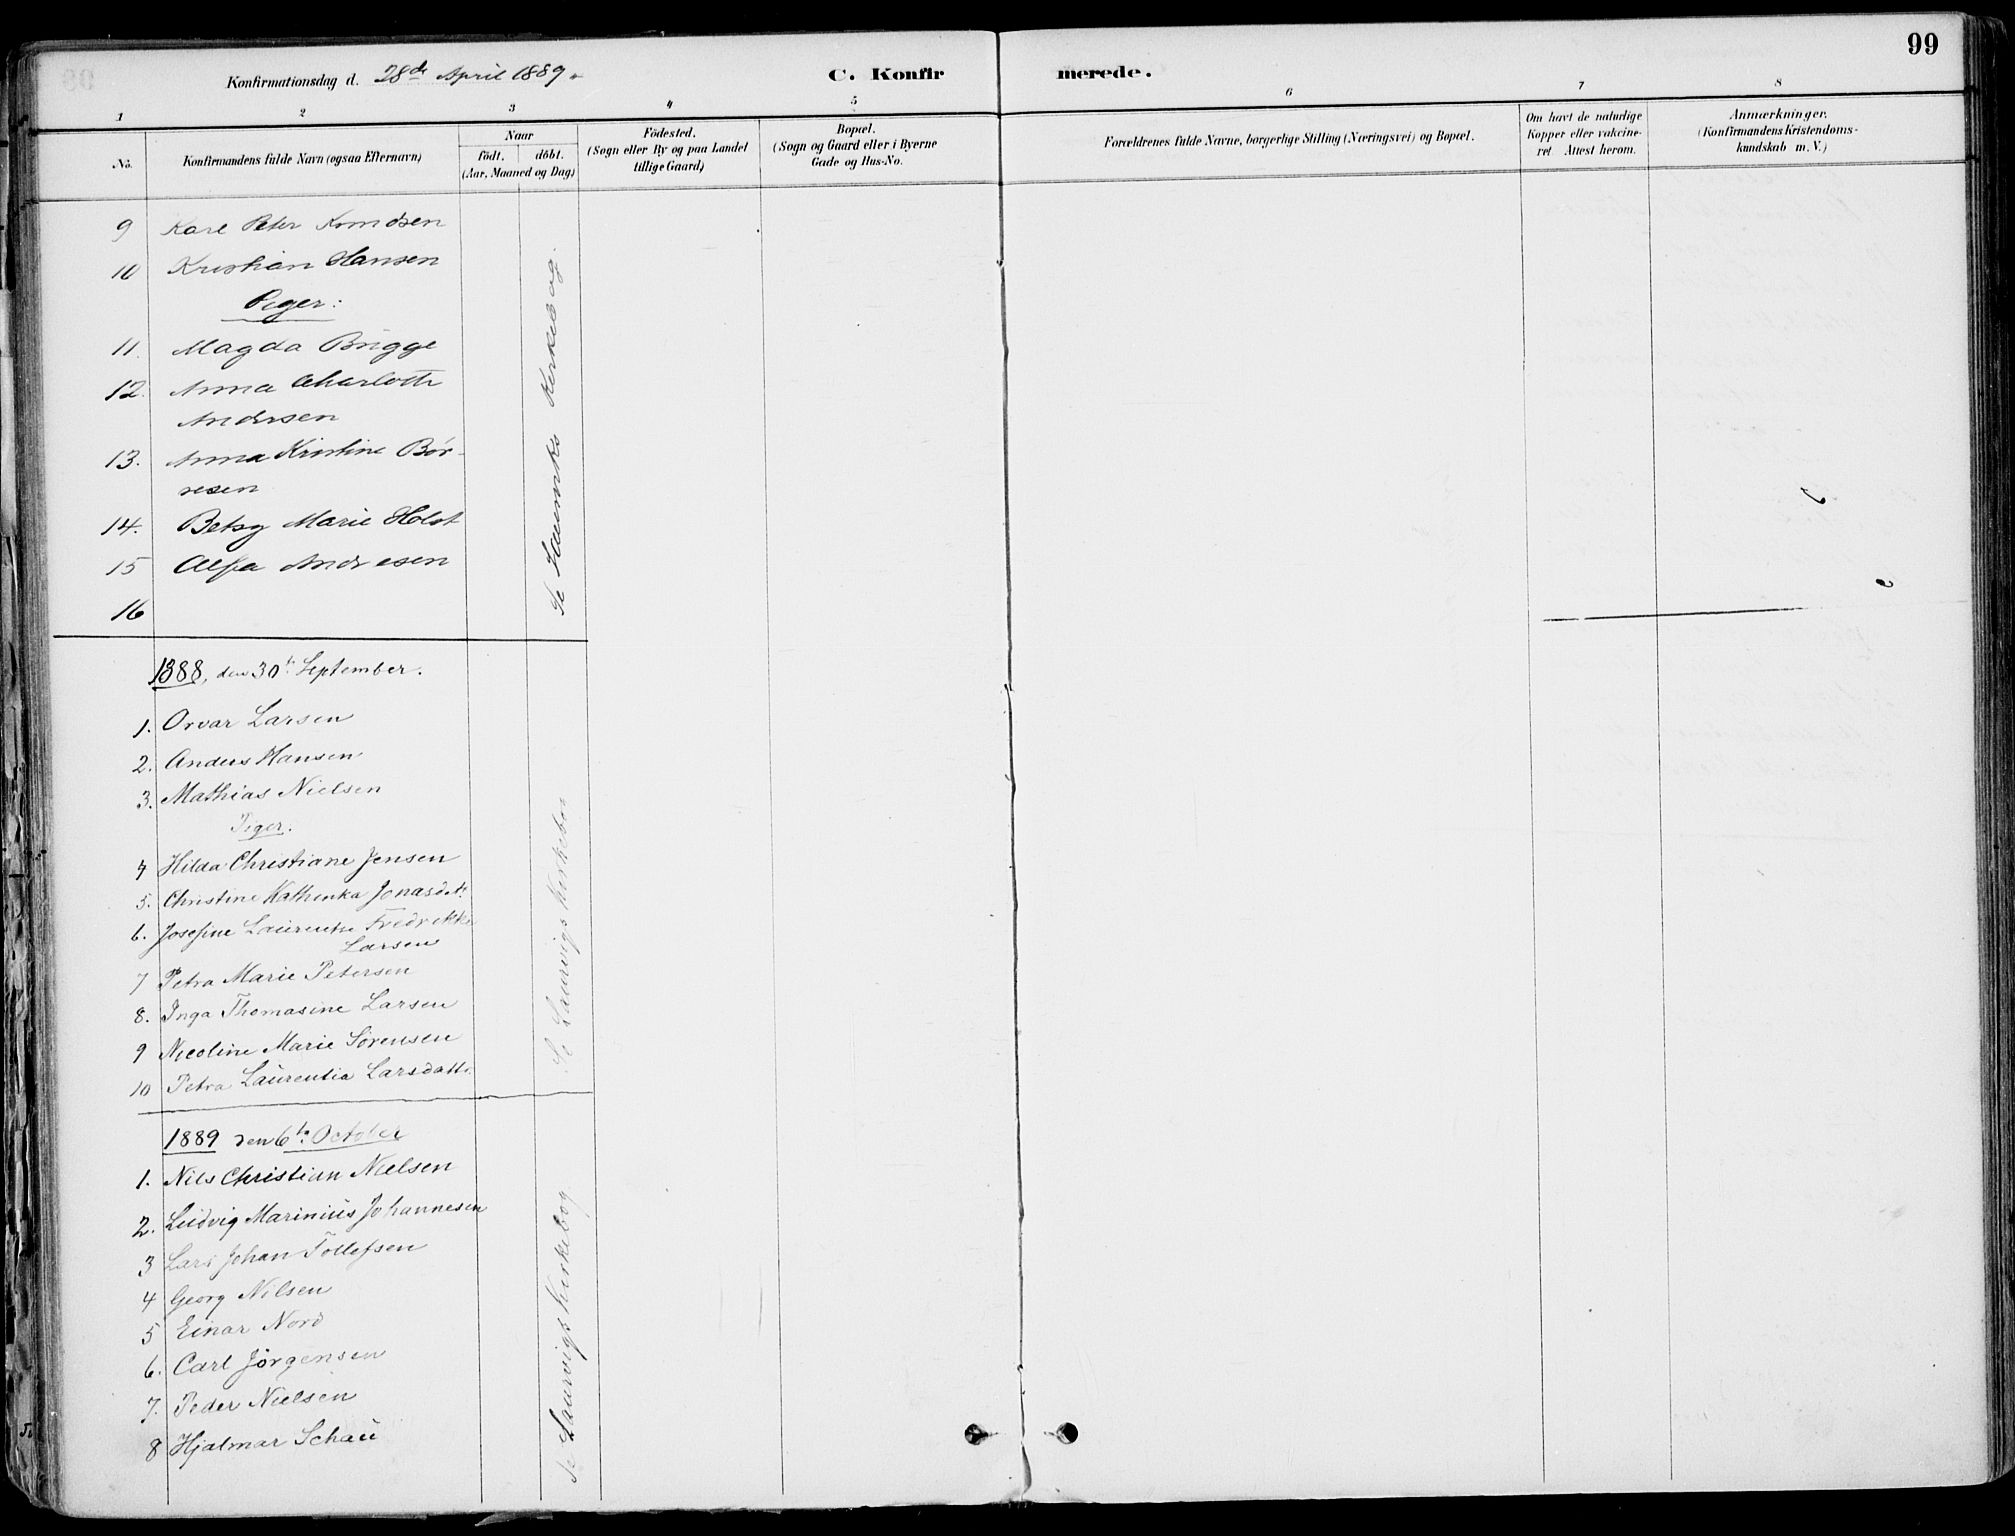 99
Konfirmationsdag d. 28de April 1889.
C. Konfirmerede.
1 2 3 4 5 6 7 8
No.
Konfirmandens fulde Navn (ogsaa Efternavn)
Naar
födt. döbt.
(Aar, Maaned og Dag)
Födested.
(Sogn eller By og paa Landet
tillige Gaard)
Bopæl.
(Sogn og Gaard eller i Byerne
Gade og Hus-No.
Forældrenes fulde Navne, borgerlige Stilling (Næringsvei) og Bopæl.
Om havt de naturlige
Kopper eller vakcine-
ret Attest herom.
Anmærkninger.
(Konfirmandens Kristendoms-
kundskab m. V.)
9 Karl Peter Knudsen
10 Kristian Hansen
Piger:
11. Magda Brügge
12. Anna Charlotte
Andersen
13. Anna Kristine Bör-
resen
14. Betsy Marie Holst
15 Alfa Andresen
16
Se Laurviks Kirkebog.
1888, den 30te September.
1. Orvar Larsen
2. Anders Hansen
3. Mathias Nielsen
Piger.
4 Hilda Christiane Jensen
5. Christine Kathinka Jonasdt.
6. Josefine Laurentze Fredrikke
Larsen
7 Petra Marie Petersen
8. Inga Thomasine Larsen
9 Nicoline Marie Sørensen
10 Petra Laurentia Larsdatt.
Se Laurvigs Kirkebog
1889 den 6te October
1. Nils Christian Nielsen
2. Ludvig Marinius Johannesen
3 Lars Johan Tollefsen
4 Georg Nilsen
5 Einar Nord
6. Carl Jörgensen
7. Peder Nielsen
8 Hjalmar Schau
Se Laurvigs Kirkebog